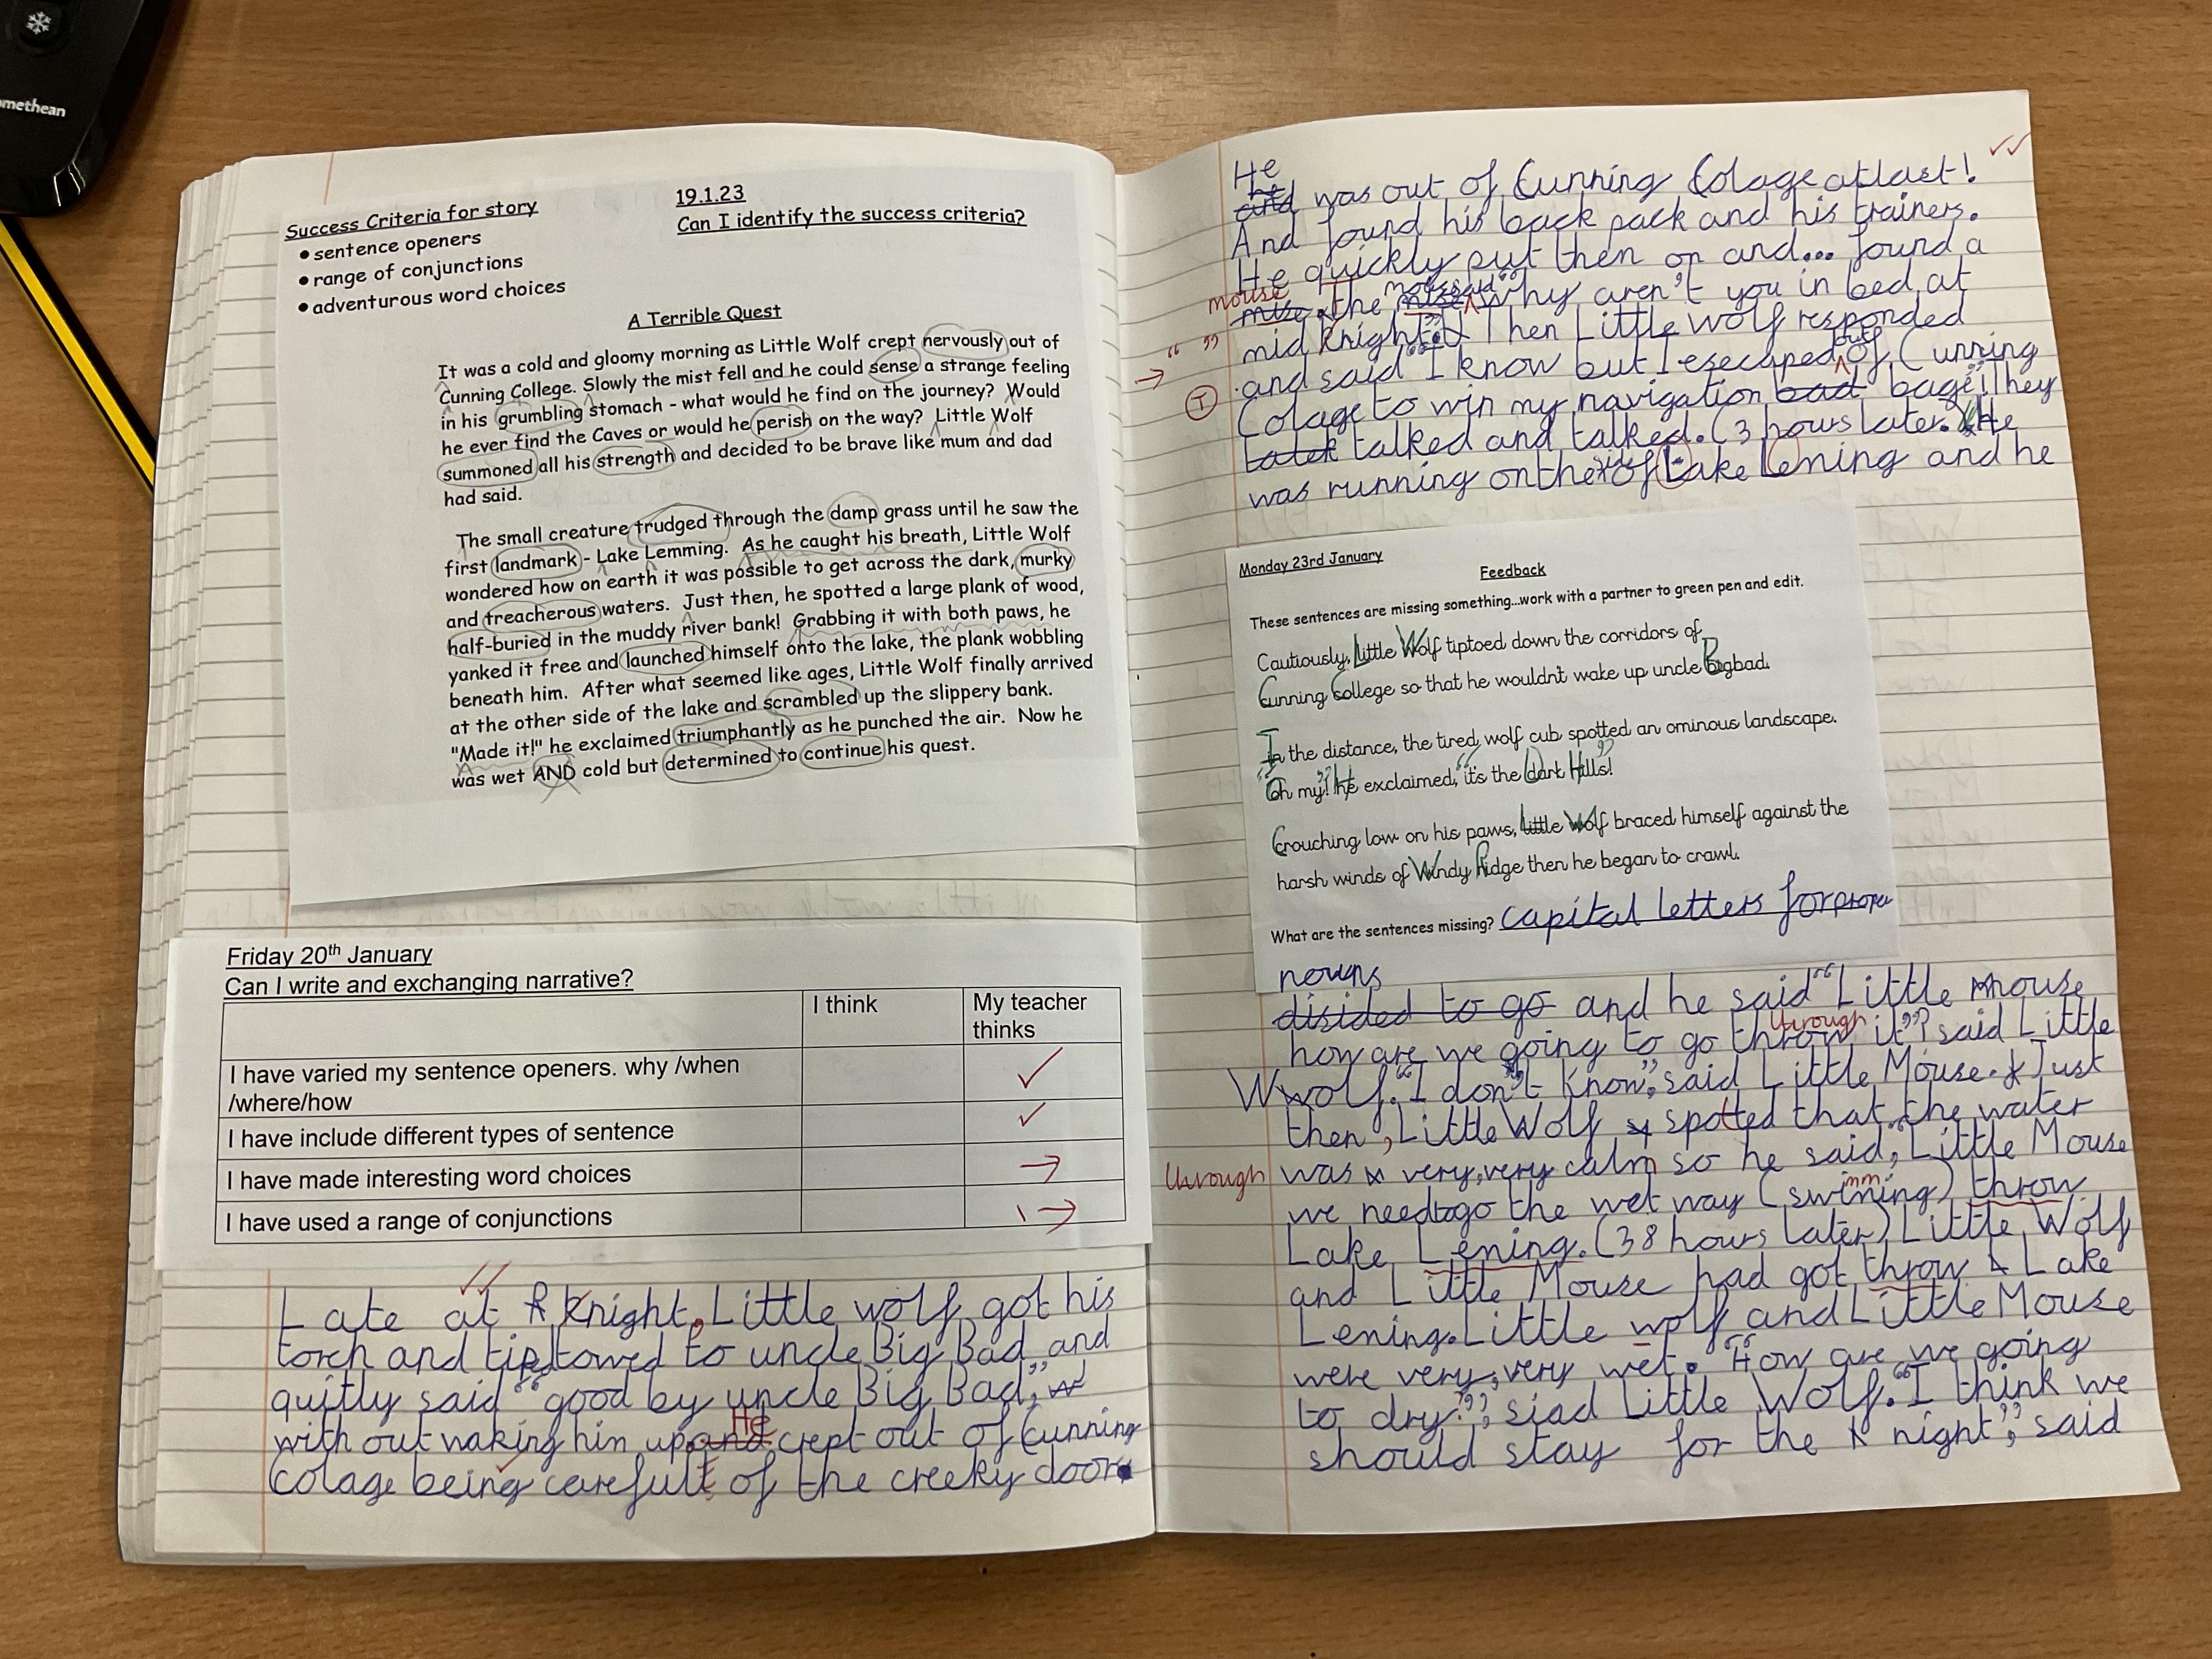 omethean
Success Criteria for story
• sentence openers
• range of conjunctions
• adventurous word choices
19.1.23
Can I identify the success criteria?
A Terrible Quest
It was a cold and gloomy morning as Little Wolf crept nervously out of
Cunning College. Slowly the mist fell and he could sense a strange feeling
in his grumbling stomach - what would he find on the journey? Would
he ever find the Caves or would he perish on the way? Little Wolf
summoned all his strength and decided to be brave like mum and dad
had said.
The small creature trudged through the damp grass until he saw the
first landmark - Lake Lemming. As he caught his breath, Little Wolf
wondered how on earth it was possible to get across the dark, murky
and treacherous waters. Just then, he spotted a large plank of wood,
half-buried in the muddy river bank! Grabbing it with both paws, he
yanked it free and launched himself onto the lake, the plank wobbling
beneath him. After what seemed like ages, Little Wolf finally arrived
at the other side of the lake and scrambled up the slippery bank.
"Made it!" he exclaimed triumphantly as he punched the air. Now he
was wet AND cold but determined to continue his quest.
Friday 20th January
Can I write and exchanging narrative?
I think
My teacher
thinks
I have varied my sentence openers. why /when
/where/how
I have include different types of sentence
I have made interesting word choices
I have used a range of conjunctions
Late at knight, Little wolf got his
torch and tiptowed to uncle Big Bad and
quitly said “good by uncle Big Bad,”
with out waking him up and He crept out of Cunning
Colage being carefull of the creeky door.
He
and was out of Cunning Colage at last!
And found his back pack and his trainers.
He quickly put then on and... found a
mouse
mise. the mouse said “why aren't you in bed at
mid knight.” Then Little Wolf responded
and said “I know but I esecaped out of Cunning
Colage to win my navigation bad bage!” They
talek talked and talked. (3 hours later.) He
was running on the side of Lake Lening and he
Monday 23rd January
Feedback
These sentences are missing something...work with a partner to green pen and edit.
Cautiously, Little Wolf tiptoed down the corridors of
Cunning College so that he wouldn't wake up uncle Bigbad.
In the distance, the tired wolf cub spotted an ominous landscape.
“Oh my!” He exclaimed, “it's the Dark Hills!”
Crouching low on his paws, Little Wolf braced himself against the
harsh winds of Windy Ridge then he began to crawl.
What are the sentences missing? capital letters for proper
nouns
disided to go and he said “Little Mouse
through
how are we going to go throw it”? said Little
Wwolf. “I don't know”, said Little Mouse. Just
then, Little Wolf spotted that the water
was very, very calm so he said, “Little Mouse
through
we need to go the wet way (swimming) throw
Lake Lening. (38 hours later) Little Wolf
and Little Mouse had got throw Lake
Lening. Little wolf and Little Mouse
were very, very wet. “How are we going
to dry?”, siad Little Wolf. “I think we
should stay for the night”, said